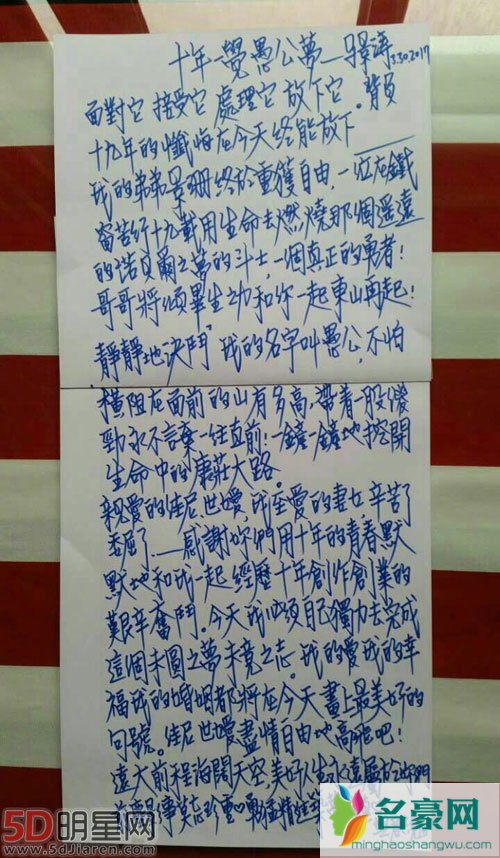 十年一覺愚公夢—景濤 3.30.2017
面對它 接受它 處理它 放下它。背負
十九年的懺悔在今天终能放下
我的弟弟景珊终於重獲自由，一位在鐵
窗苦行十九載用生命去燃燒那個遥遠
的諾貝爾之夢的斗士，一個真正的勇者！
哥哥將傾畢生之力和你一起東山再起！
靜靜地決鬥"我的名字叫愚公，不怕
横阻在面前的山有多高，帶着一股傻
勁永不言棄一往直前！一鏟一鏟地挖開
生命中的康莊大路。
親愛的佳尼 世嫒，我至愛的妻女，辛苦了
委屈了——感謝妳們用十年的青春默
默地和我一起經歷十年創作創業的
艱辛奮鬥。今天我必須自己獨力去完成
這個未圓之夢未竟之志。我的愛我的幸
福我的婚姻都將在今天畫上最美好的
句號。佳尼 世嫒盡情自由地高飛吧！
遠大前程海闊天空，美好人生永遠屬於妳們
5D明星网
www.5djiaren.com
名豪网
minghaoshangwu.com